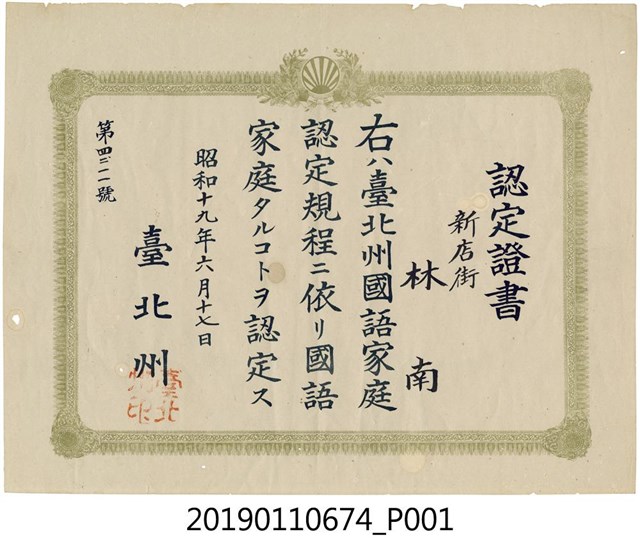 認定證書
新店街
林 南
右ハ臺北州國語家庭
認定規程ニ依リ國語
家庭タルコトヲ認定ス
昭和十九年六月十七日
臺北州
臺北州印
20190110674_P001